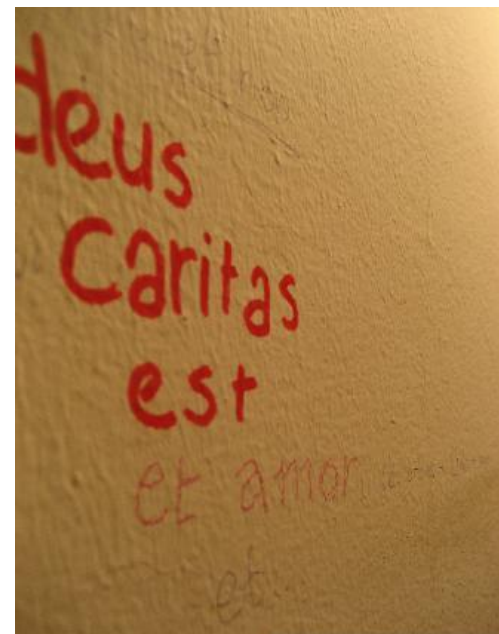 deus
caritas
est
et amor
et